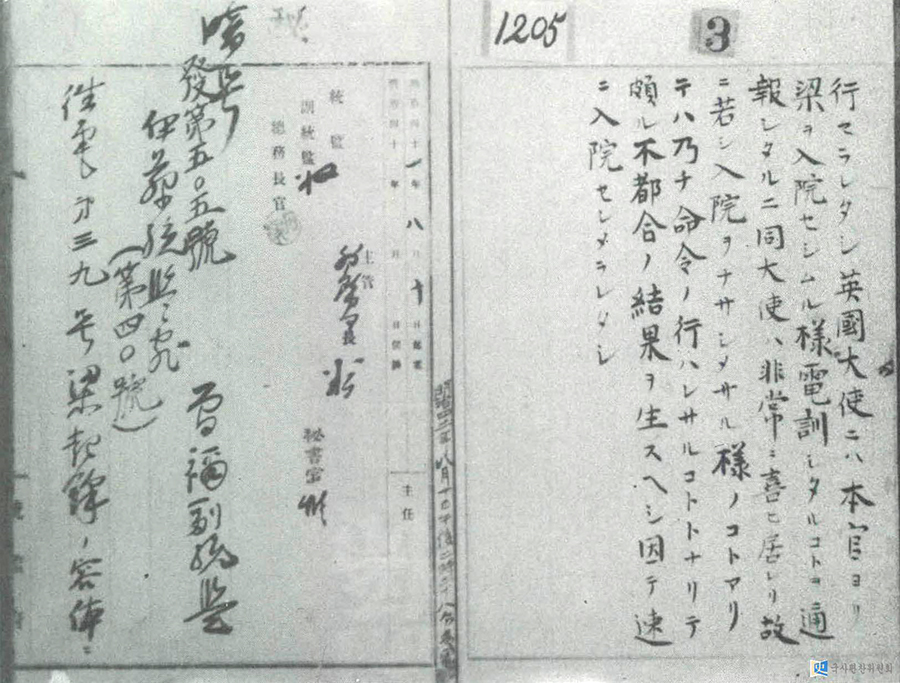 1205
3
行セラレタシ英國大使ニハ本官ヨリ
梁ヲ入院セシムル樣電訓シタルコトヲ通
報シタルニ同大使ハ非常ニ喜ヒ居レリ故
ニ若シ入院ヲナサシメサル樣ノコトアリ
テハ乃チ命令ノ行ハレサルコトトナリテ
頗ル不都合ノ結果ヲ生スヘシ因テ速
ニ入院セシメラレタシ
明治四十一年八月十日
主任
主管
秘書官
統監
副統監
總務長官
暗号
發第五〇五號
伊藤統監宛
(第四〇號)
曾禰副統監
往電才三九号梁起鐸ノ容体ニ
국사편찬위원회